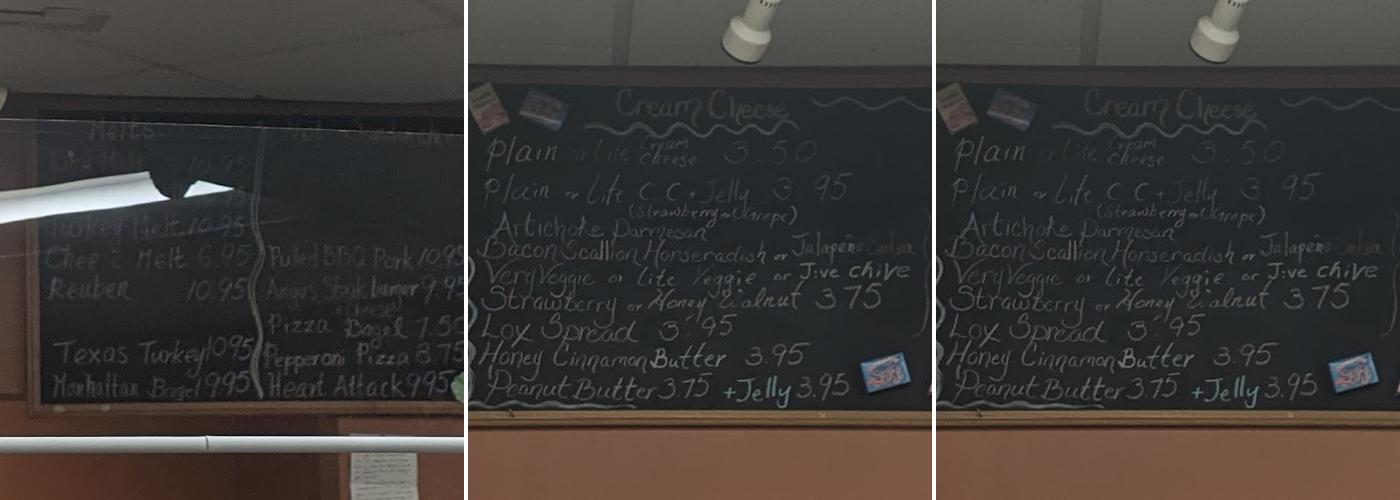 Melts
10.95
Turkey Melt 10.95
Melt 6.95
Reuben 10.95
Texas Turkey 10.95
Manhattan Bagel 9.95
Pulled BBQ Pork 10.95
Angus Steak burner 9.95
+ cheese
Pizza Bagel 7.50
Pepperoni Pizza 8.75
Heart Attack 9.95
Cream Cheese
Plain or Lite Cream cheese 3.50
Plain or Lite C.C + Jelly 3.95
(Strawberry or Grape)
Artichoke Parmesan
Bacon Scallion Horseradish or Jalapeño Salsa
Very Veggie or Lite Veggie or Jive chive
Strawberry or Honey Walnut 3.75
Lox Spread 3.95
Honey Cinnamon Butter 3.95
Peanut Butter 3.75 +Jelly 3.95
Cream Cheese
Plain or Lite Cream cheese 3.50
Plain or Lite C.C + Jelly 3.95
(Strawberry or Grape)
Artichoke Parmesan
Bacon Scallion Horseradish or Jalapeño Salsa
Very Veggie or Lite Veggie or Jive chive
Strawberry or Honey Walnut 3.75
Lox Spread 3.95
Honey Cinnamon Butter 3.95
Peanut Butter 3.75 +Jelly 3.95